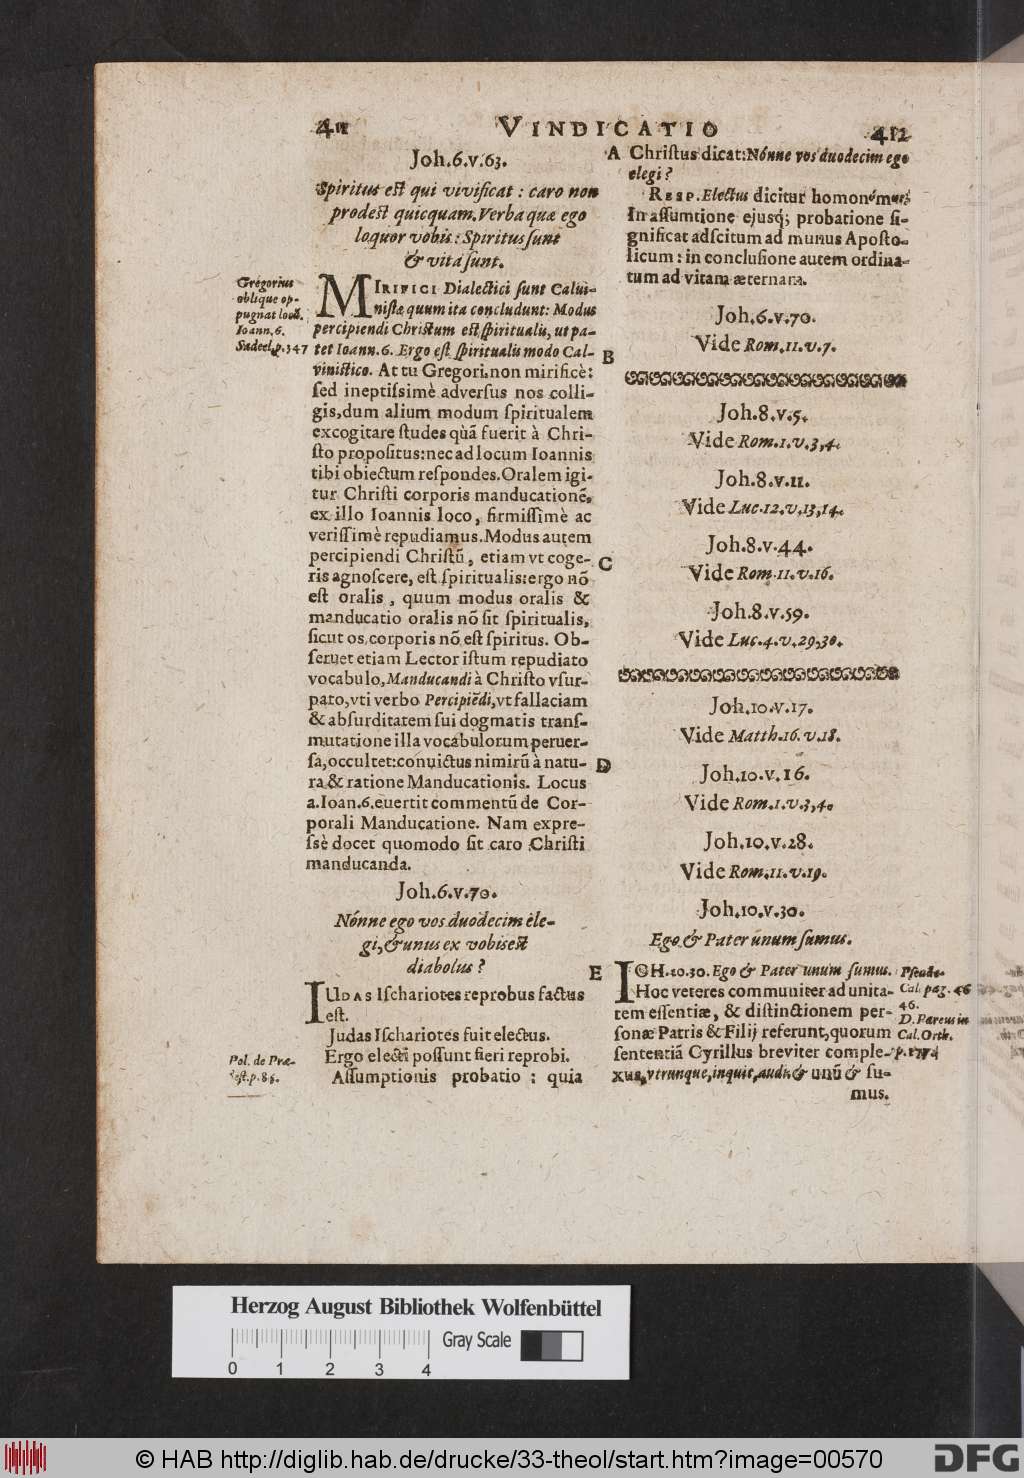 411 VINDICATIO 412
Joh.6.v.63.
Spiritus est qui vivificat : caro non
prodest quicquam. Verba quæ ego
loquor vobis : Spiritus sunt
& vita sunt.
Gregorius
oblique op-
pugnat locũ.
Ioann.6.
Sadeel,p.347
MIRIFICI Dialectici sunt Calui-
nistæ quum ita concludunt: Modus
percipiendi Christum est spiritualis, ut pa-
tet Ioann. 6. Ergo est spiritualis modo Cal-
vinistico. At tu Gregori, non mirificè:
sed ineptissimè adversus nos colli-
gis, dum alium modum spiritualem
excogitare studes quã fuerit à Chri-
sto propositus: nec ad locum Ioannis
tibi obiectum respondes. Oralem igi-
tur Christi corporis manducationẽ,
ex illo Ioannis loco, firmissimè ac
verissimè repudiamus. Modus autem
percipiendi Christũ, etiam vt coge-
ris agnoscere, est spiritualis: ergo nõ
est oralis, quum modus oralis &
manducatio oralis nõ sit spiritualis,
sicut os corporis nõ est spiritus. Ob-
seruet etiam Lector istum repudiato
vocabulo, Manducandi à Christo vsur-
pato, vti verbo Percipiẽdi, vt fallaciam
& absurditatem sui dogmatis trans-
mutatione illa vocabulorum peruer-
sa, occultet: convictus nimirũ à natu-
ra & ratione Manducationis. Locus
a. Ioan.6. evertit commentũ de Cor-
porali Manducatione. Nam expre-
ssè docet quomodo sit caro Christi
manducanda.
Joh.6.v.70.
Nónne ego vos duodecim ele-
gi, & unus ex vobis est
diabolus?
IUDAS Ischariotes reprobus factus
est.
Judas Ischariotes fuit electus.
Ergo electi possunt fieri reprobi.
Pol. de Præ-
dest.p.86.
Assumptionis probatio : quia
A Christus dicat: Nónne vos duodecim ego
elegi?
RESP. Electus dicitur homonýmως
In assumtione ejusq; probatione si-
gnificat adscitum ad munus Aposto-
licum : in conclusione autem ordina-
tum ad vitam æternam.
Joh.6.v.70.
Vide Rom.11.v.7.
B
Joh.8.v.5.
Vide Rom.1.v.3,4.
Joh.8.v.11.
Vide Luc.12.v.13,14.
Joh.8.v.44.
C
Vide Rom.11.v.16.
Joh.8.v.59.
Vide Luc.4.v.29,30.
Joh.10.v.17.
Vide Matth.16.v.18.
D
Joh.10.v.16.
Vide Rom.1.v.3,4.
Joh.10.v.28.
Vide Rom.11.v.19.
Joh.10.v.30.
Ego & Pater unum sumus.
E IOH.10.30. Ego & Pater unum sumus.
Hoc veteres communiter ad unita-
tem essentiæ, & distinctionem per-
sonæ Patris & Filij referunt, quorum
sententiã Cyrillus breviter comple-
xus, vtrunque, inquit, audi: & unũ & su-
mus.
Pseudo-
Cal. pag. 46
46.
D. Pareus in
Cal. Orth.
Herzog August Bibliothek Wolfenbüttel
0 1 2 3 4
Gray Scale
© HAB http://diglib.hab.de/drucke/33-theol/start.htm?image=00570
DFG